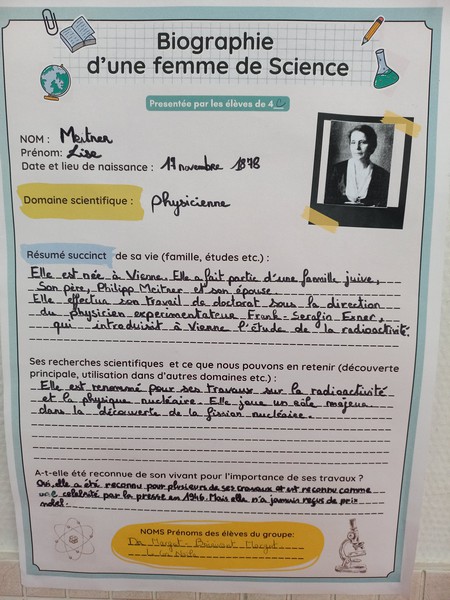 Biographie
d'une femme de Science
Presentée par les élèves de 4
NOM : Meitner
Prénom: Lise
Date et lieu de naissance : 17 novembre 1878
Domaine scientifique : Physicienne
Résumé succinct de sa vie (famille, études etc.) :
Elle est née à Vienne. Elle a fait partie d'une famille juive,
Son père, Philipp Meitner et son épouse.
Elle effectua son travail de doctorat sous la direction
du physicien expérimentateur Frank-Serafin Exner,
qui introduisit à Vienne l'étude de la radioactivité.
Ses recherches scientifiques et ce que nous pouvons en retenir (découverte
principale, utilisation dans d'autres domaines etc.) :
Elle est renommé pour ses travaux sur la radioactivité
et la physique nucléaire. Elle joue un rôle majeur
dans la découverte de la fission nucléaire.
A-t-elle été reconnue de son vivant pour l'importance de ses travaux ?
Oui, elle a été reconnu pour plusieurs de ses travaux et est reconnu comme
une célébrité par la presse en 1946. Mais elle n'a jamais reçus de prix
nobel.
NOMS Prénoms des élèves du groupe:
Margot